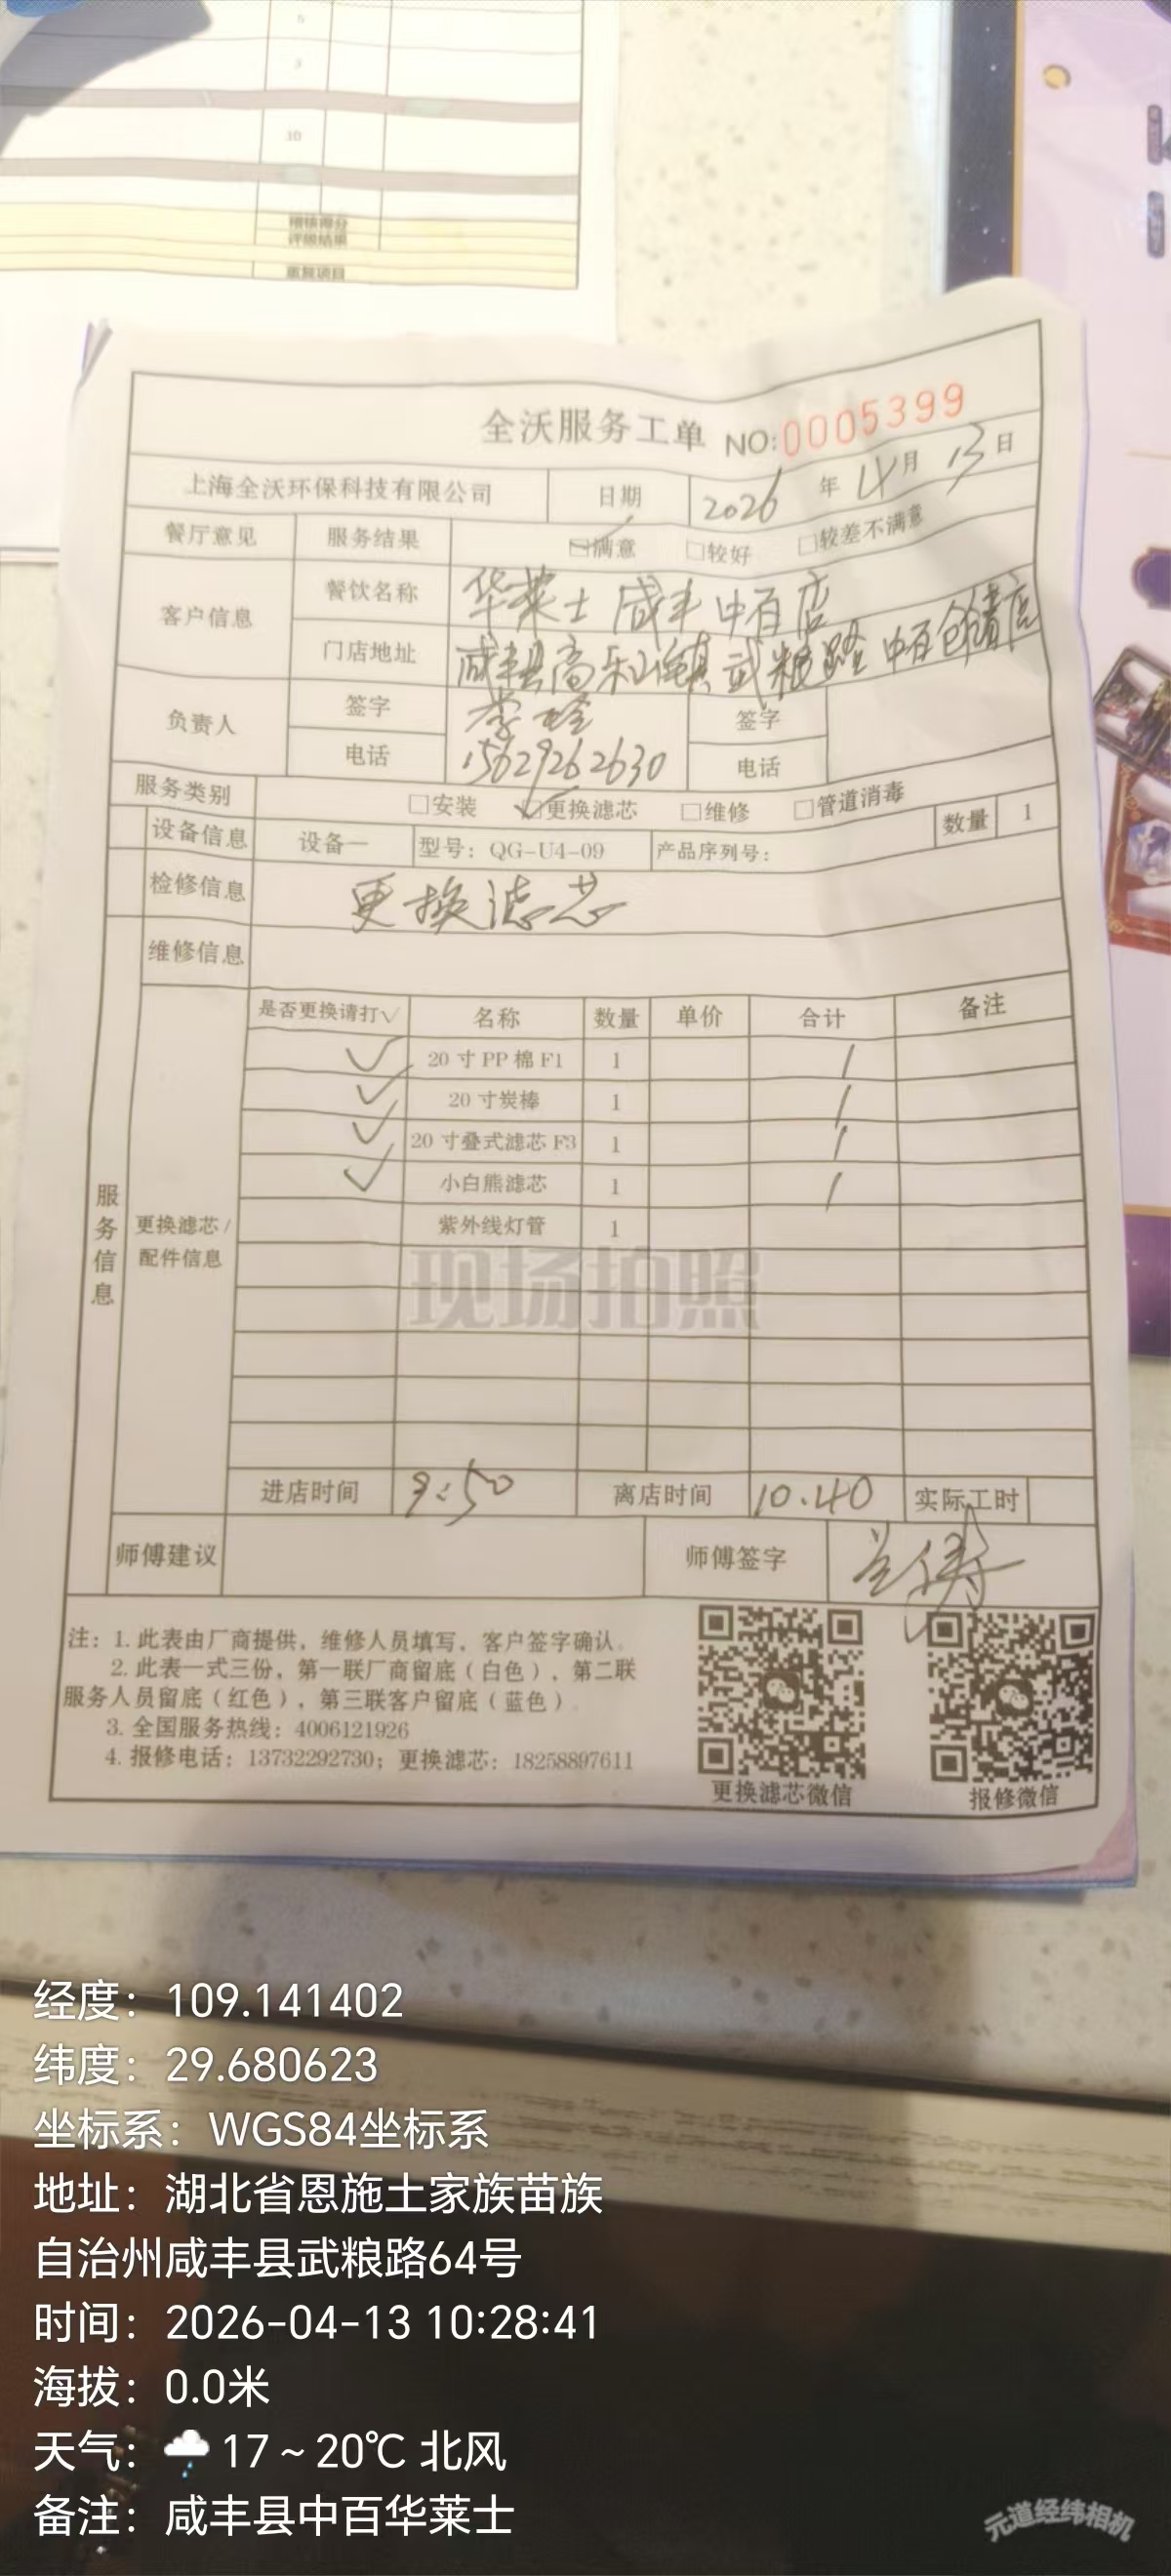 5
3
10
稽核得分
评级结果
重复项目
全沃服务工单 NO:0005399
上海全沃环保科技有限公司 日期 2026 年 4 月 13 日
餐厅意见 服务结果 ☑满意 □较好 □较差不满意
客户信息 餐饮名称 华莱士 咸丰中百店
门店地址 咸丰县高乐山镇武粮路中百仓储店
负责人 签字 签字
电话 15629262630 电话
服务类别 □安装 ☑更换滤芯 □维修 □管道消毒
设备信息 设备一 型号：QG-U4-09 产品序列号： 数量 1
检修信息 更换滤芯
维修信息
服务信息
更换滤芯/
配件信息
是否更换请打√ 名称 数量 单价 合计 备注
√ 20寸PP棉F1 1 1
√ 20寸炭棒 1 1
√ 20寸叠式滤芯F3 1 1
√ 小白熊滤芯 1 1
紫外线灯管 1
现场拍照
进店时间 9:50 离店时间 10.40 实际工时
师傅建议 师傅签字
注：1. 此表由厂商提供，维修人员填写，客户签字确认。
2. 此表一式三份，第一联厂商留底（白色），第二联
服务人员留底（红色），第三联客户留底（蓝色）。
3. 全国服务热线：4006121926
4. 报修电话：13732292730；更换滤芯：18258897611
更换滤芯微信 报修微信
经度：109.141402
纬度：29.680623
坐标系：WGS84坐标系
地址：湖北省恩施土家族苗族
自治州咸丰县武粮路64号
时间：2026-04-13 10:28:41
海拔：0.0米
天气：17～20℃ 北风
备注：咸丰县中百华莱士
元道经纬相机